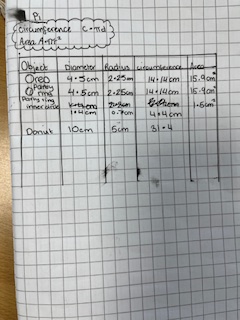 Pi
Circumference C=πd
Area A=πr²
Object Diameter Radius circumference Area
Oreo 4.5cm 2.25cm 14.14cm 15.9cm²
Party rings 4.5cm 2.25cm 14.14cm 15.9cm²
Party ring
inner circle 1.4cm 0.7cm 4.4cm 1.5cm²
Donut 10cm 5cm 31.4